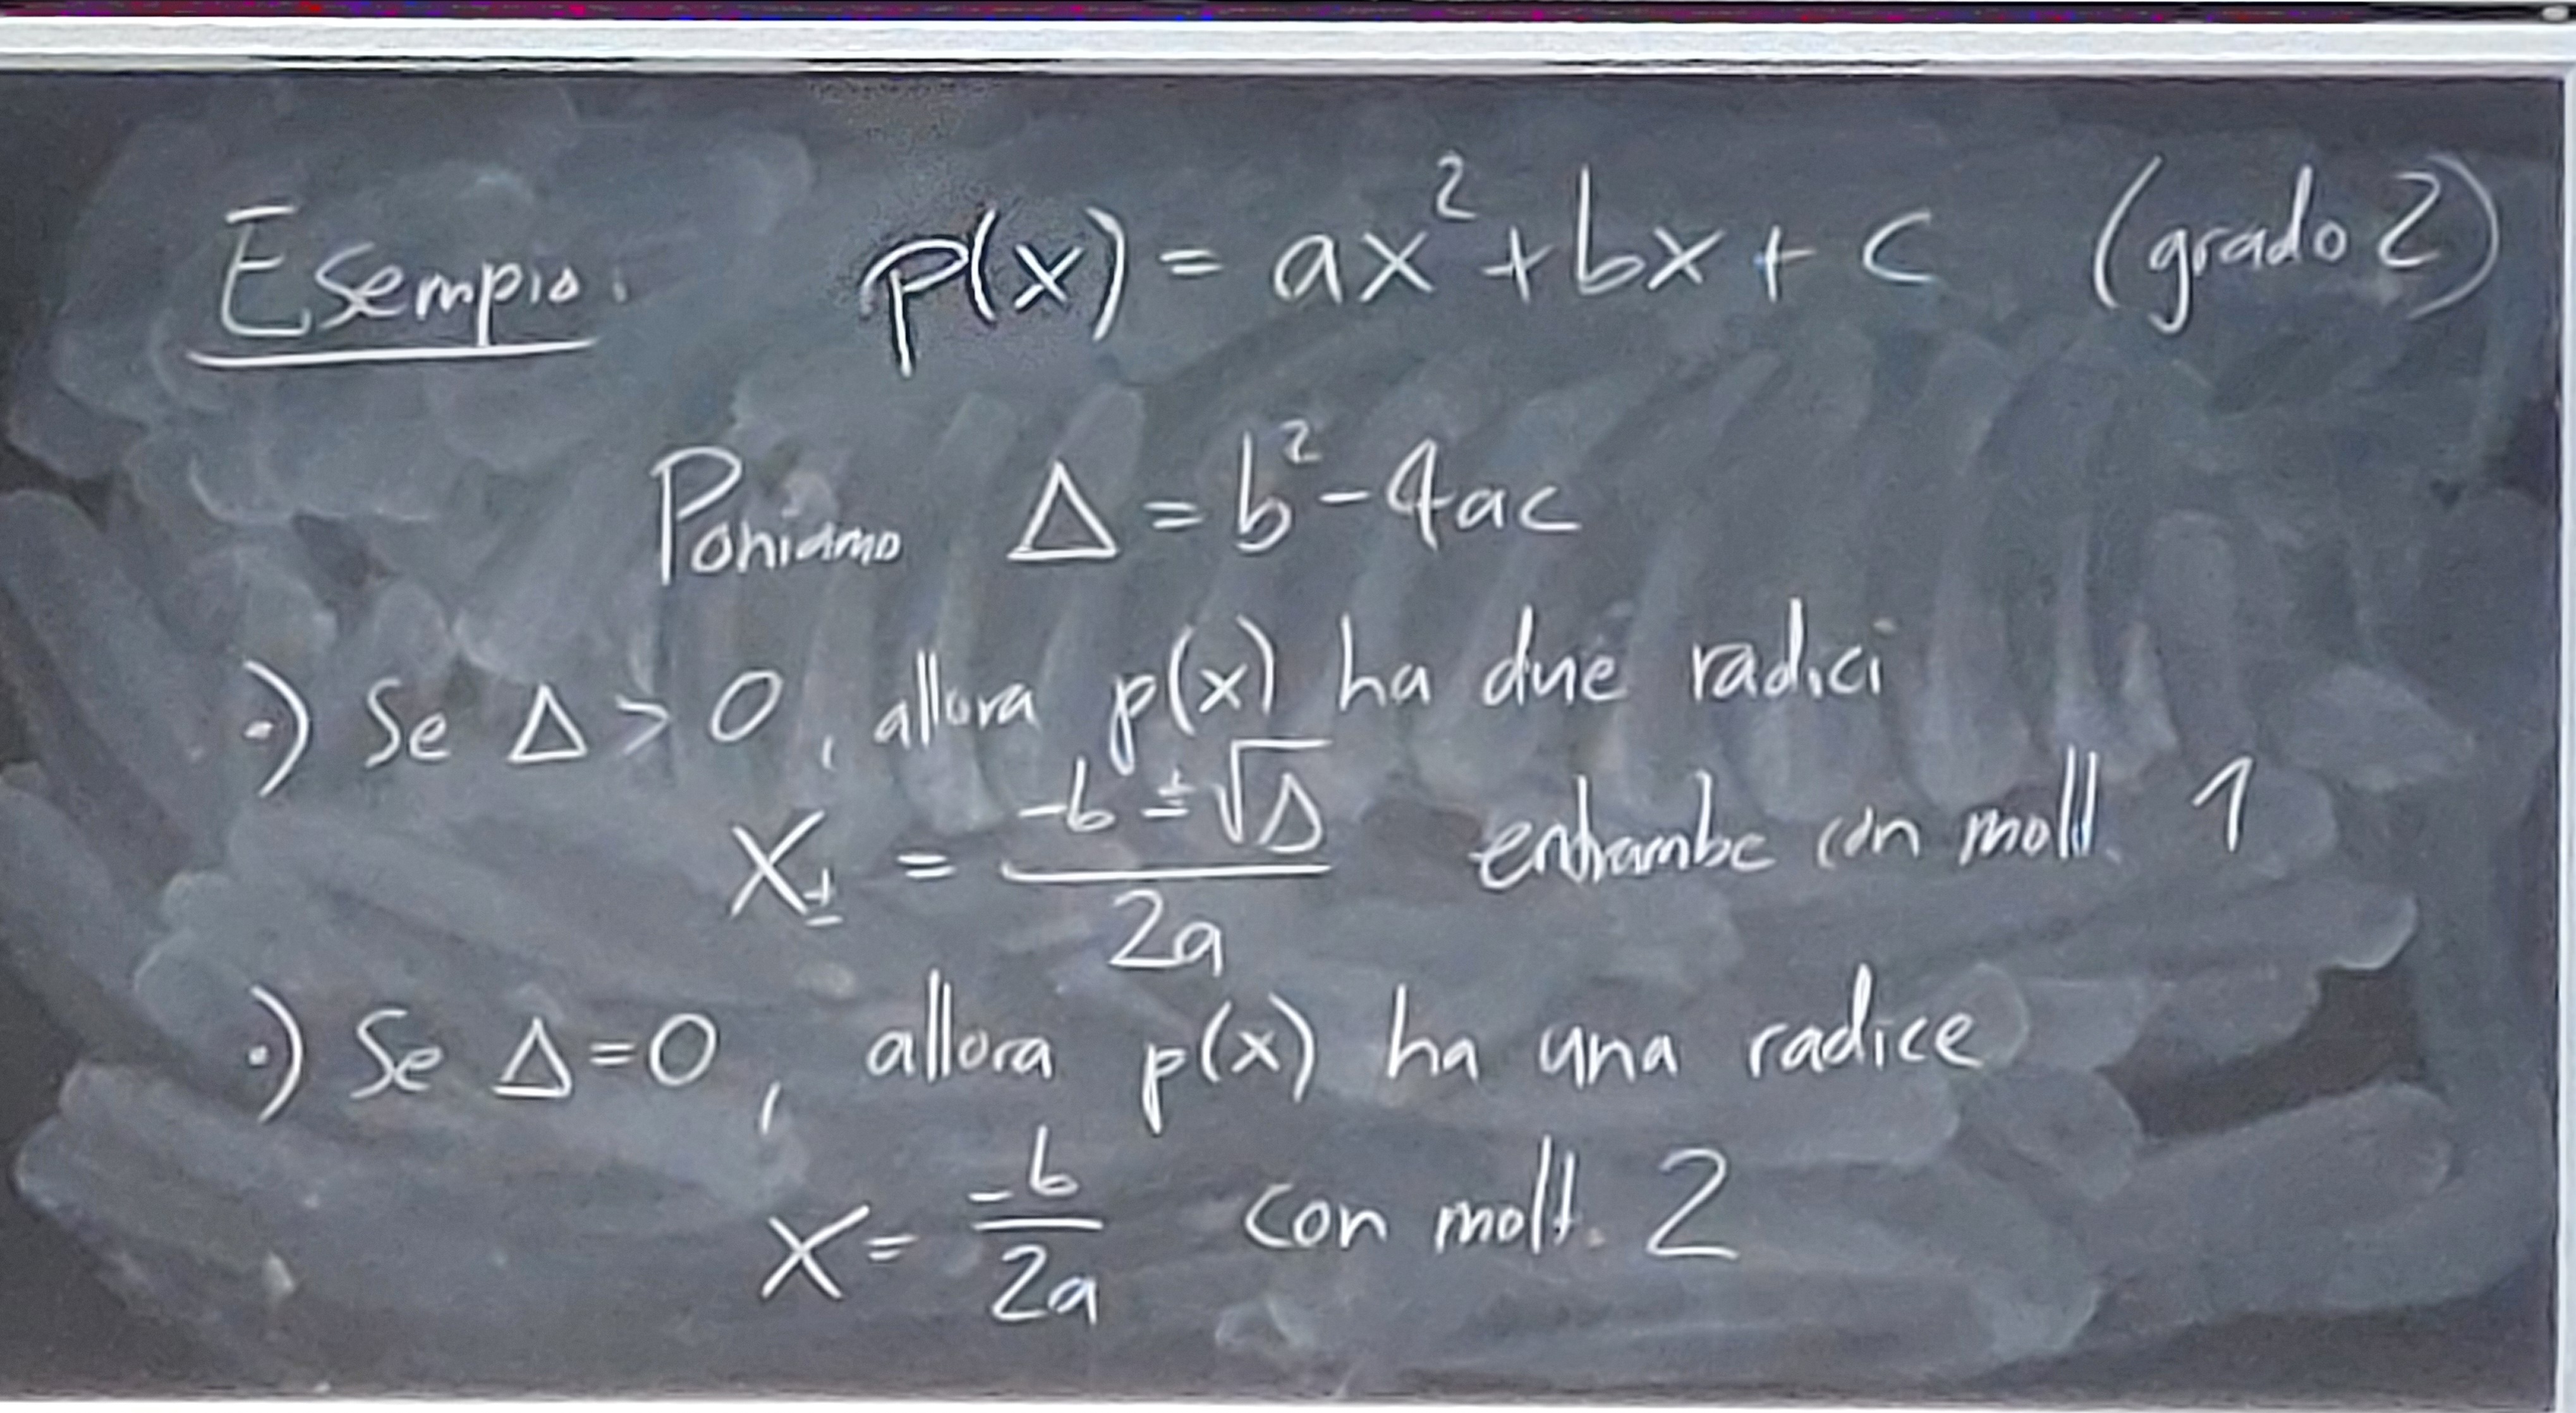 Esempio. p(x) = ax² + bx + c (grado 2)
Poniamo Δ = b² - 4ac
·) Se Δ > 0, allora p(x) ha due radici
x± = (-b ± √Δ)/2a entrambe con molt. 1
·) Se Δ = 0, allora p(x) ha una radice
x = -b/2a con molt. 2